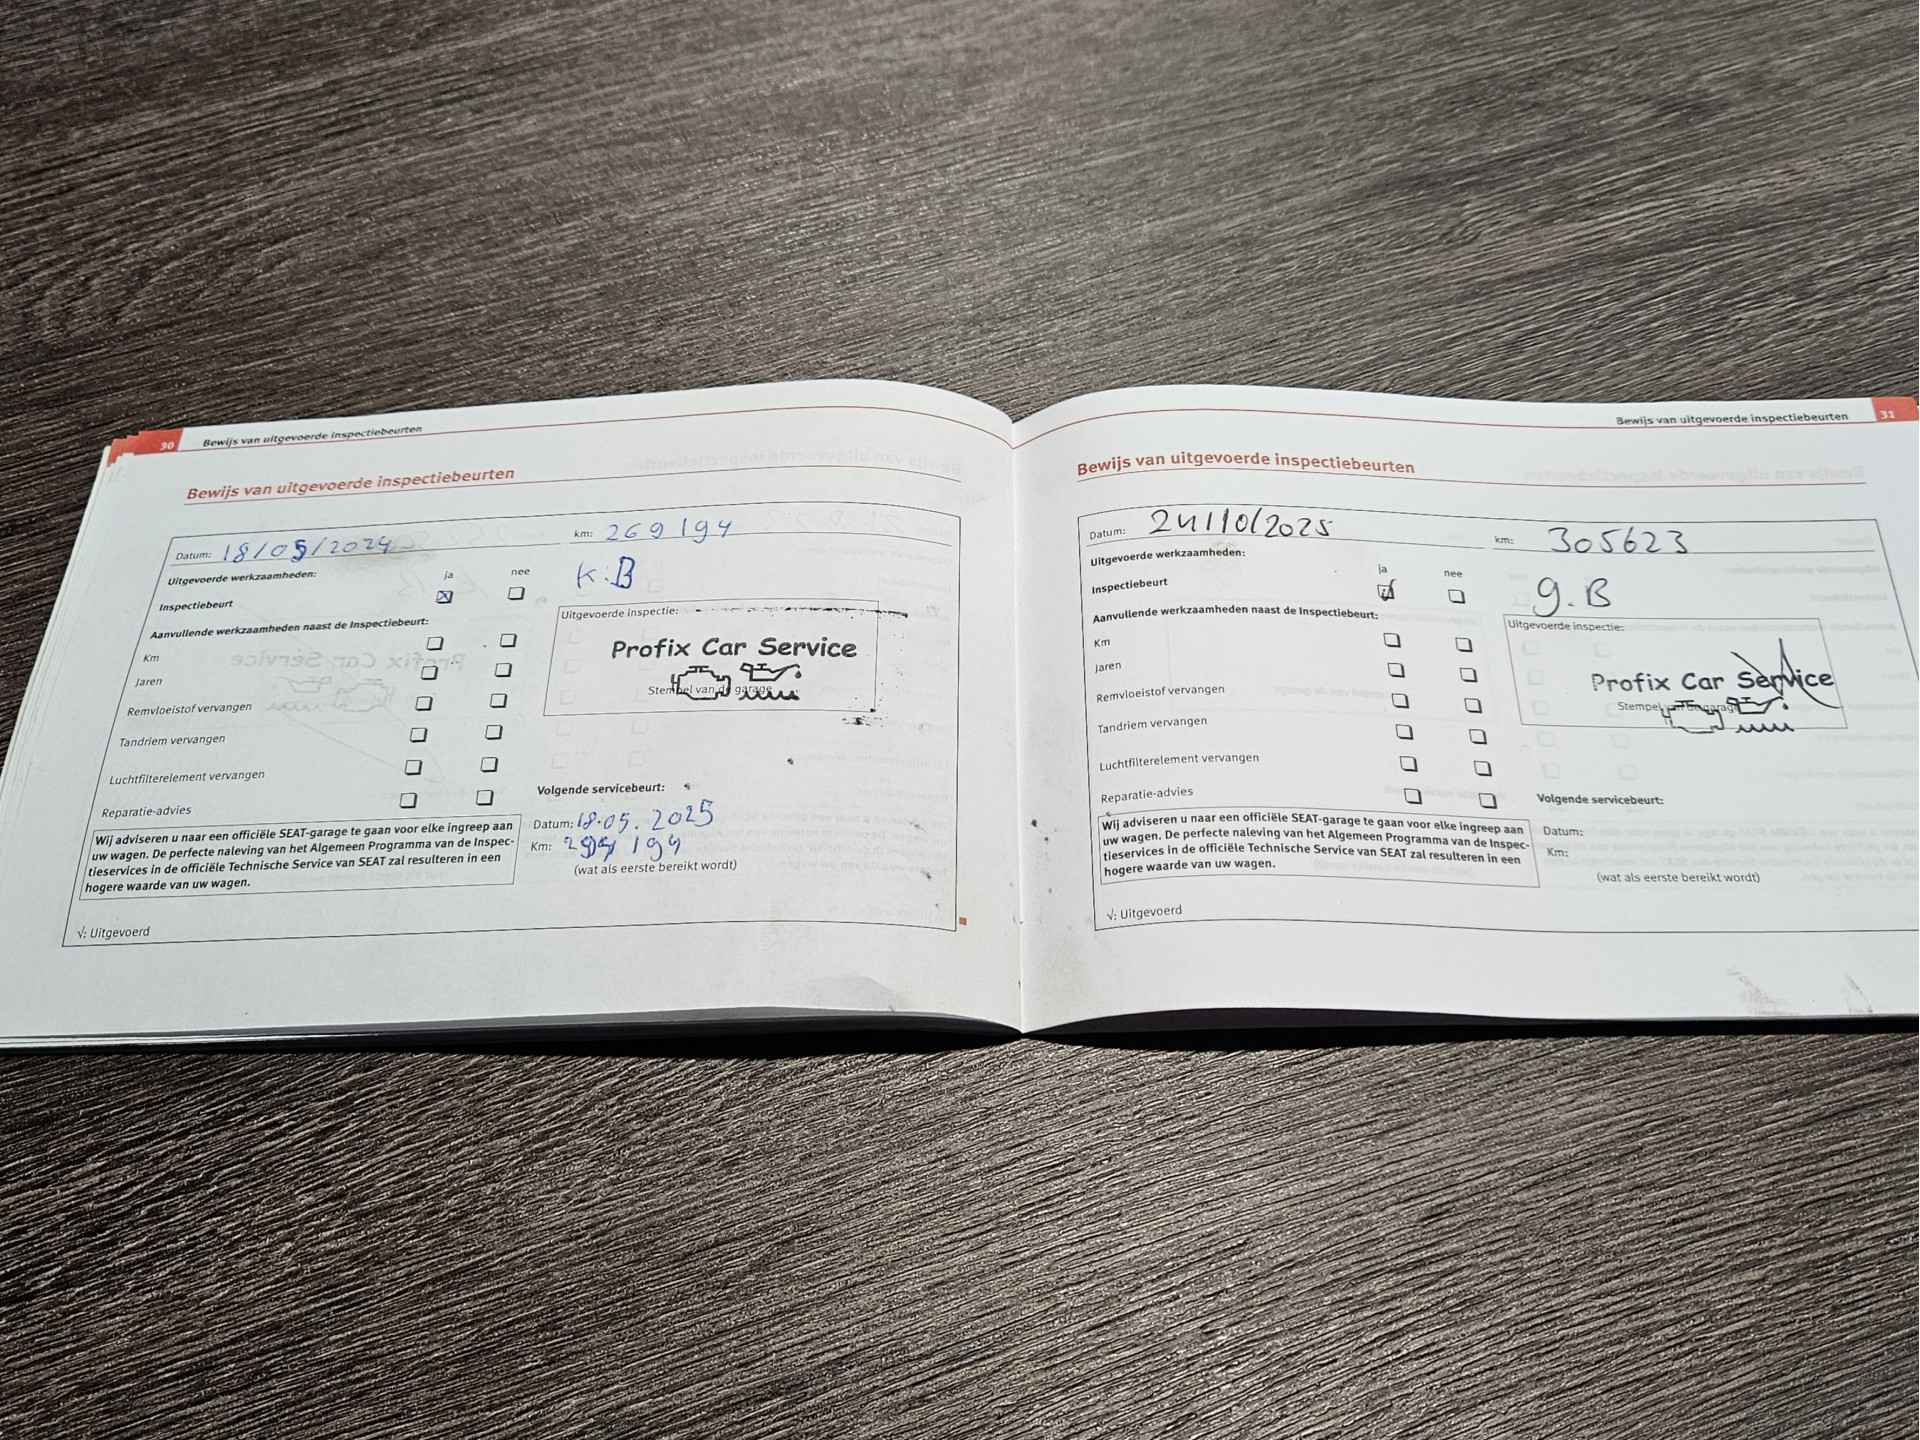 30 Bewijs van uitgevoerde inspectiebeurten
Bewijs van uitgevoerde inspectiebeurten
Datum: 18/05/2024 km: 269194
Uitgevoerde werkzaamheden: ja nee
K.B
Inspectiebeurt
Aanvullende werkzaamheden naast de Inspectiebeurt:
Km
Jaren
Remvloeistof vervangen
Tandriem vervangen
Luchtfilterelement vervangen
Reparatie-advies
Uitgevoerde inspectie:
Profix Car Service
Stempel van de garage
Volgende servicebeurt:
Datum: 18.05.2025
Km: 194
(wat als eerste bereikt wordt)
Wij adviseren u naar een officiële SEAT-garage te gaan voor elke ingreep aan
uw wagen. De perfecte naleving van het Algemeen Programma van de Inspec-
tieservices in de officiële Technische Service van SEAT zal resulteren in een
hogere waarde van uw wagen.
√: Uitgevoerd
Bewijs van uitgevoerde inspectiebeurten 31
Bewijs van uitgevoerde inspectiebeurten
Datum: 24/10/2025 km: 305623
Uitgevoerde werkzaamheden: ja nee
Inspectiebeurt
g.B
Aanvullende werkzaamheden naast de Inspectiebeurt:
Km
Jaren
Remvloeistof vervangen
Tandriem vervangen
Luchtfilterelement vervangen
Reparatie-advies
Uitgevoerde inspectie:
Profix Car Service
Stempel van de garage
Volgende servicebeurt:
Datum:
Km:
(wat als eerste bereikt wordt)
Wij adviseren u naar een officiële SEAT-garage te gaan voor elke ingreep aan
uw wagen. De perfecte naleving van het Algemeen Programma van de Inspec-
tieservices in de officiële Technische Service van SEAT zal resulteren in een
hogere waarde van uw wagen.
√: Uitgevoerd